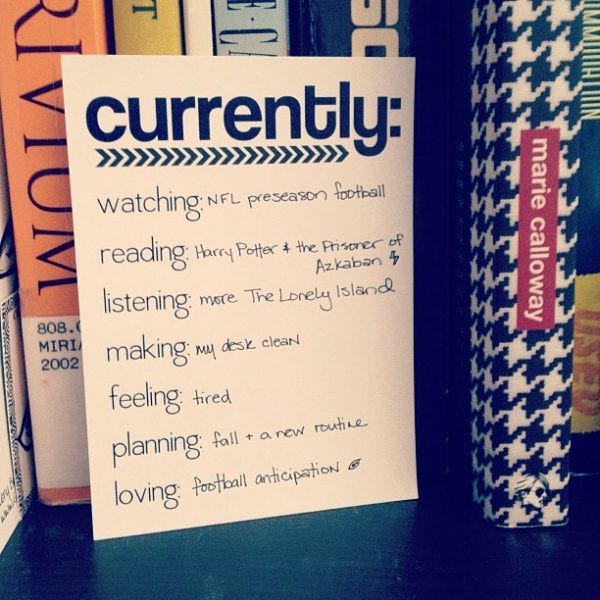 RIVIUM
808.
MIRI
2002
currently:
watching: NFL preseason football
reading: Harry Potter & the Prisoner of
Azkaban
listening: more The Lonely Island
making: my desk clean
feeling: tired
planning: fall + a new routine
loving: football anticipation
marie calloway